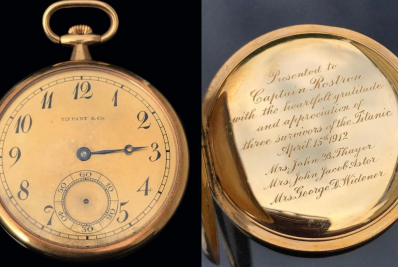 TIFFANY & CO.
12
1
2
3
4
5
6
7
8
9
10
11
60
10
20
30
40
50
Presented to
Captain Rostron
with the heartfelt gratitude
and appreciation of
three survivors of the Titanic
April 15th 1912
Mrs. John B. Thayer
Mrs. John Jacob Astor
Mrs. George D. Widener